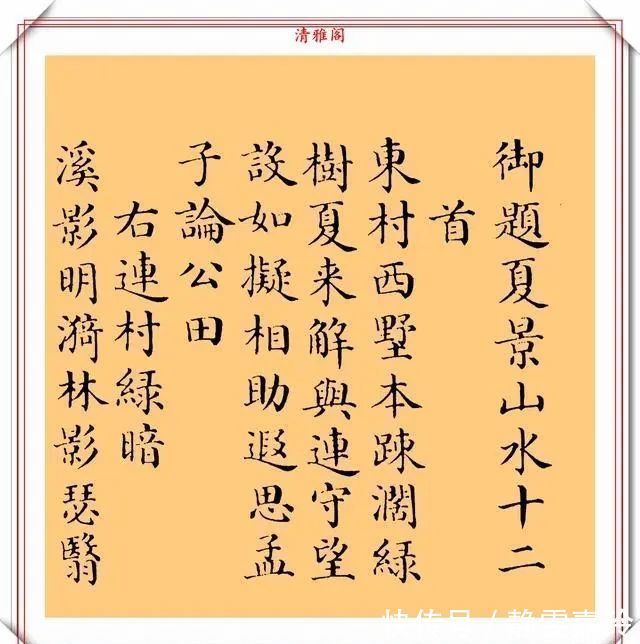 清雅阁
御題夏景山水十二
首
東村西墅本踈濶綠
樹夏来解與連守望
設如擬相助遐思孟
子論公田
右連村綠暗
溪影明漪林影瑟翳